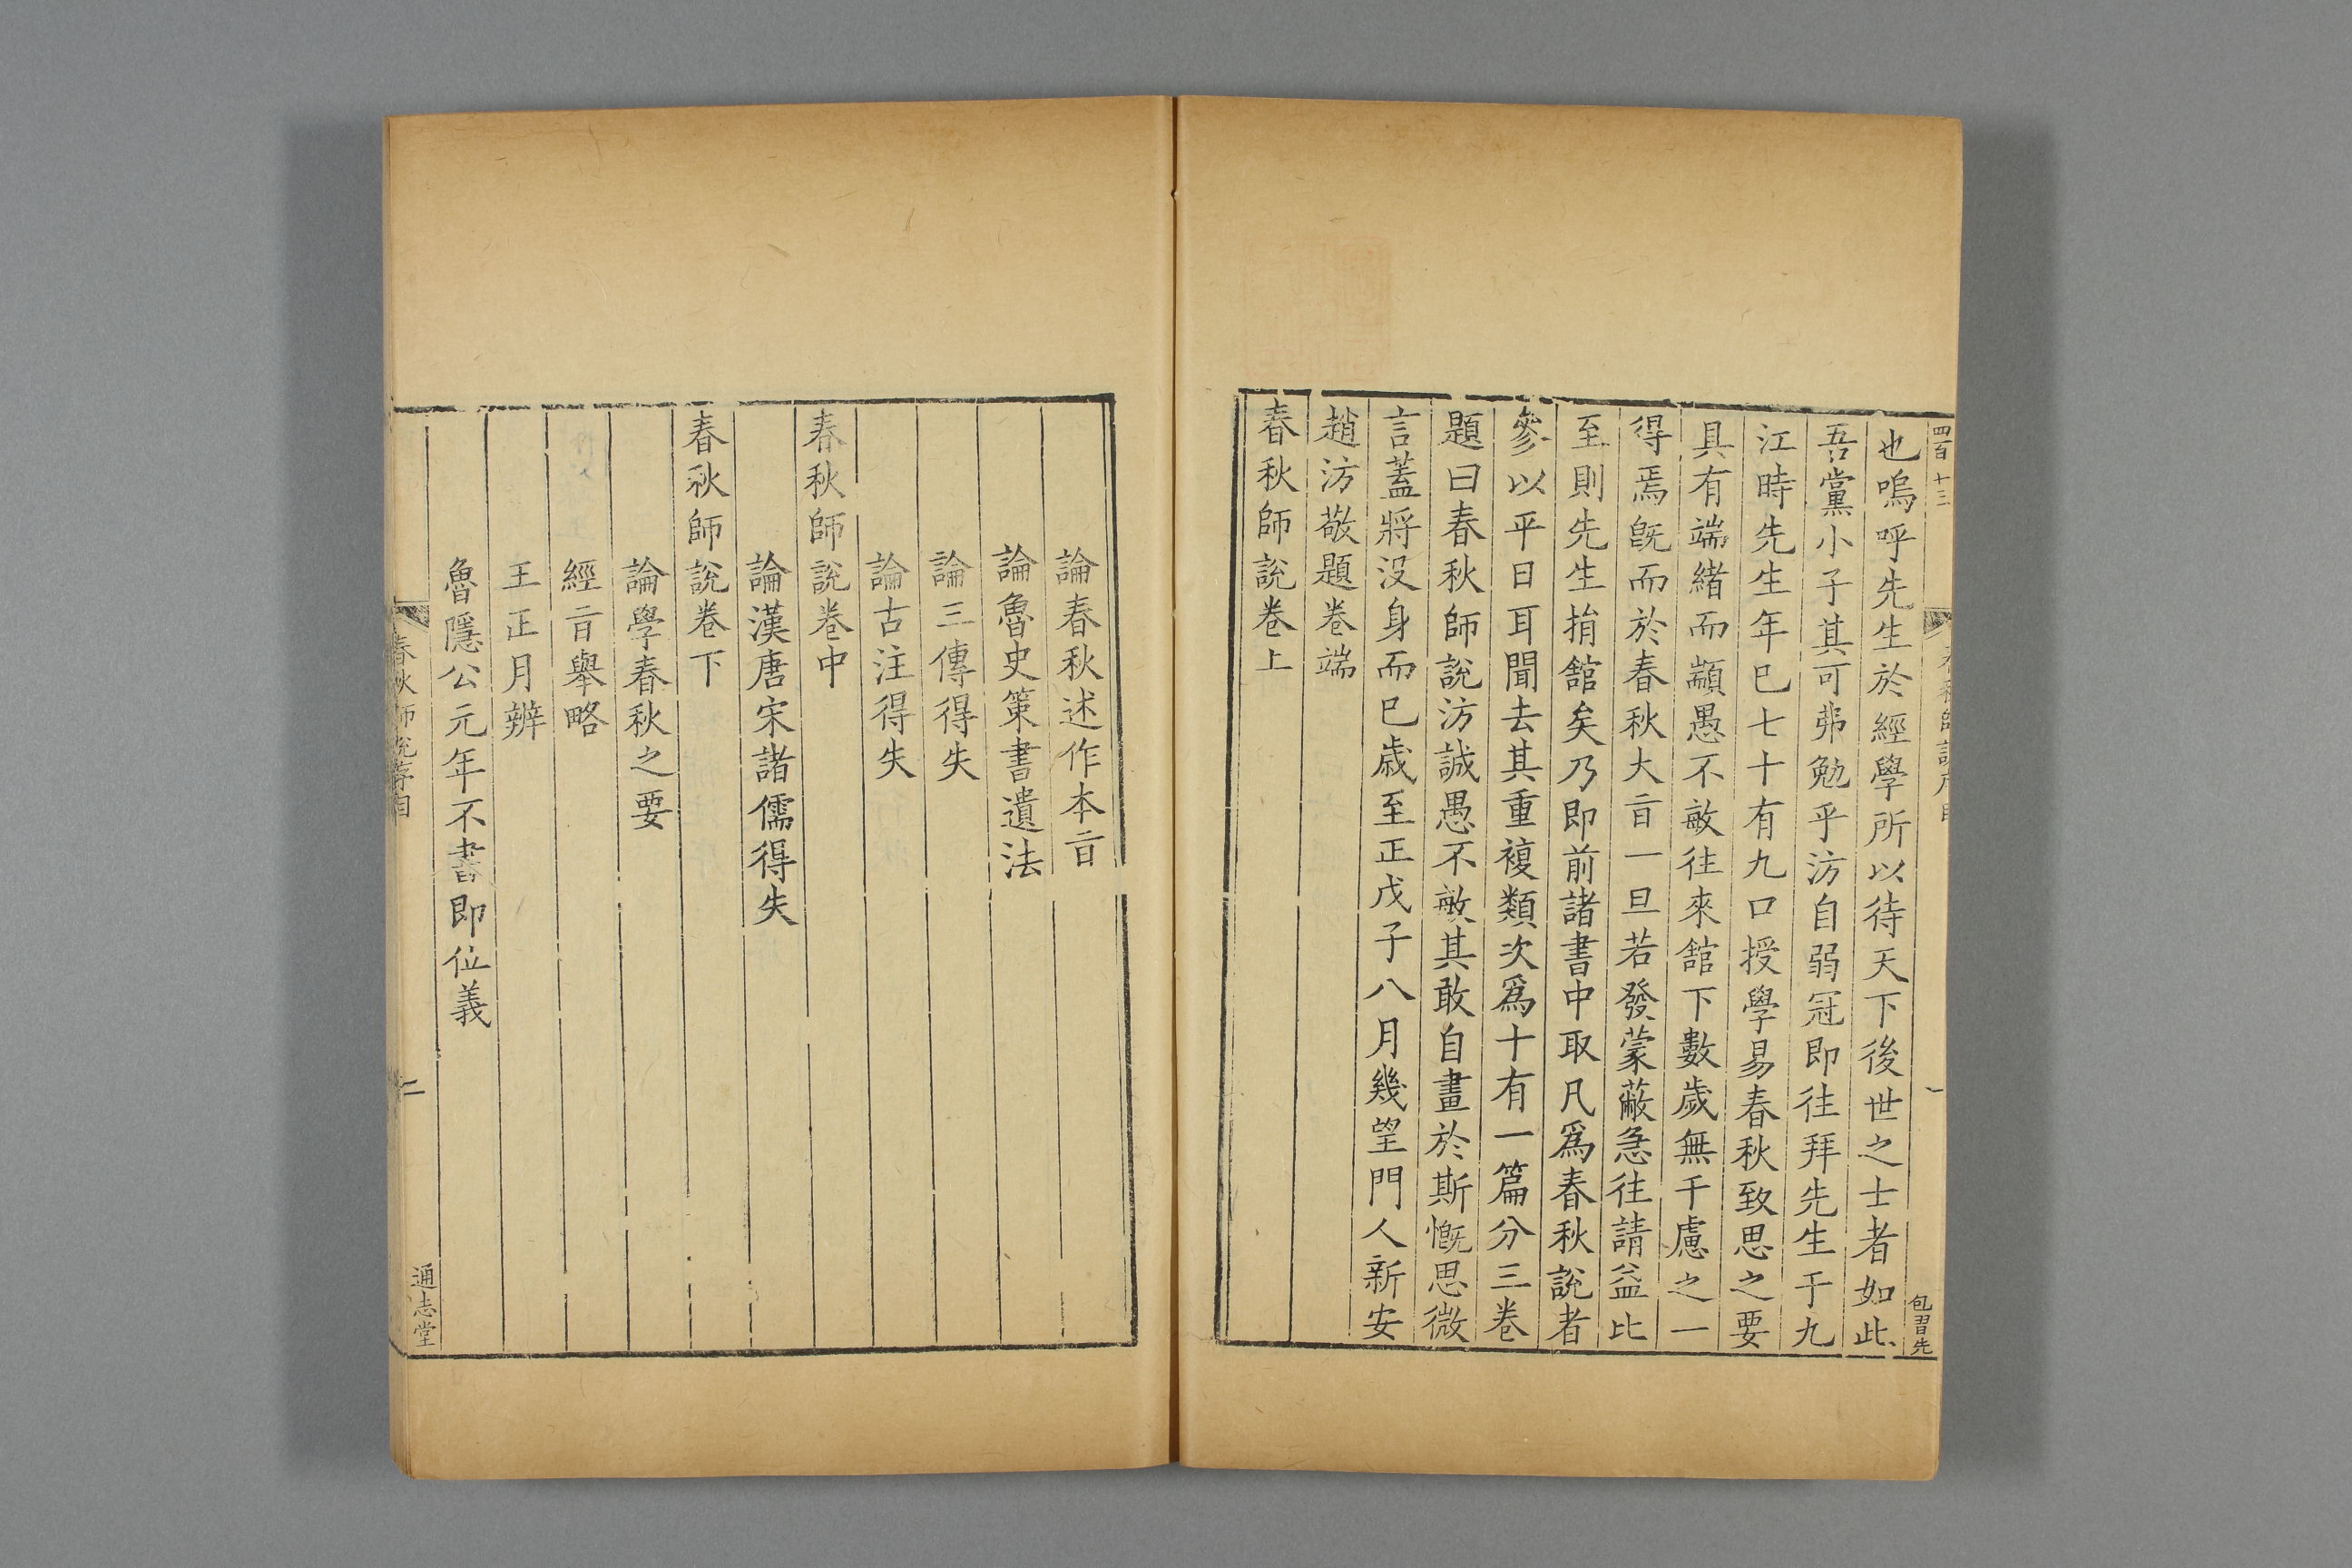 四百十三
春秋師說序目
一
包習先
也嗚呼先生於經學所以待天下後世之士者如此
吾黨小子其可弗勉乎汸自弱冠即往拜先生于九
江時先生年巳七十有九口授學易春秋致思之要
具有端緒而顓愚不敏往來舘下數歲無千慮之一
得焉旣而於春秋大㫖一旦若發蒙蔽急往請益比
至則先生捐舘矣乃即前諸書中取凡爲春秋說者
參以平日耳聞去其重複類次爲十有一篇分三卷
題曰春秋師說汸誠愚不敏其敢自畫於斯慨思微
言蓋將没身而巳歲至正戊子八月幾望門人新安
趙汸敬題卷端
春秋師說卷上
論春秋述作本㫖
論魯史策書遺法
論三傳得失
論古注得失
春秋師說卷中
論漢唐宋諸儒得失
春秋師說卷下
論學春秋之要
經㫖舉略
王正月辨
魯隱公元年不書即位義
春秋師說序目
二
通志堂